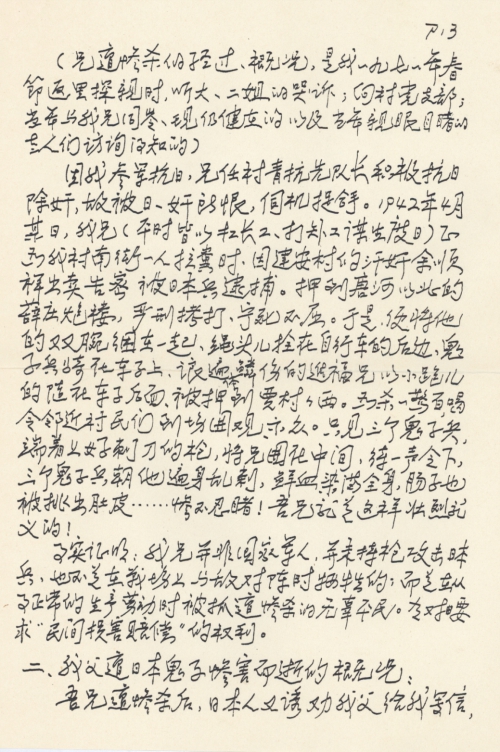 P.3
(兄遭惨杀的经过、概况，是我一九七一年春
節返里探親时，听大、二姐的哭诉；向村党支部；
当年与我兄同岑、现仍健在的以及当年親眼目睹的
老人们讨询得知的)
因我参军抗日，兄任村青抗先队长积极抗日
除奸，故被日、奸所恨，伺机捉拿。1942年4月
某日，我兄(平时皆以扛长工、打短工谋生度日)正
为我村南街一人拉糞时，因建安村的汗奸余顺
祥出卖告密被日本兵逮捕。押到唐河以北的
薛庄炮楼，严刑拷打、宁死不屈。于是，便将他
的双腕綑在一起、绳头儿拴在自行车的后边，鬼
子兵骑在车子上，讓遍体鳞伤的進福兄以小跑儿
的随在车子后面，被押到贾村々西。为杀一警百喝
令邻近村民们到场围观示众。只见三个鬼子兵，
端着上好刺刀的枪，将兄围在中间，随一声令下，
三个鬼子兵朝他遍身乱刺，鲜血染满全身，肠子也
被挑出肚皮……惨不忍睹！吾兄就是这样壮烈就
义的！
事实证明：我兄并非国家军人，并未持枪攻击日本
兵，也不是在戰场上与敌对阵时牺牲的；而是在从
事正常的生产劳动时被抓遭惨杀的无辜平民。有对日要
求“民间损害賠償”的权利。
二、我父遭日本鬼子惨害而逝的概况：
吾兄遭惨杀后，日本人又诱劝我父给我寄信，